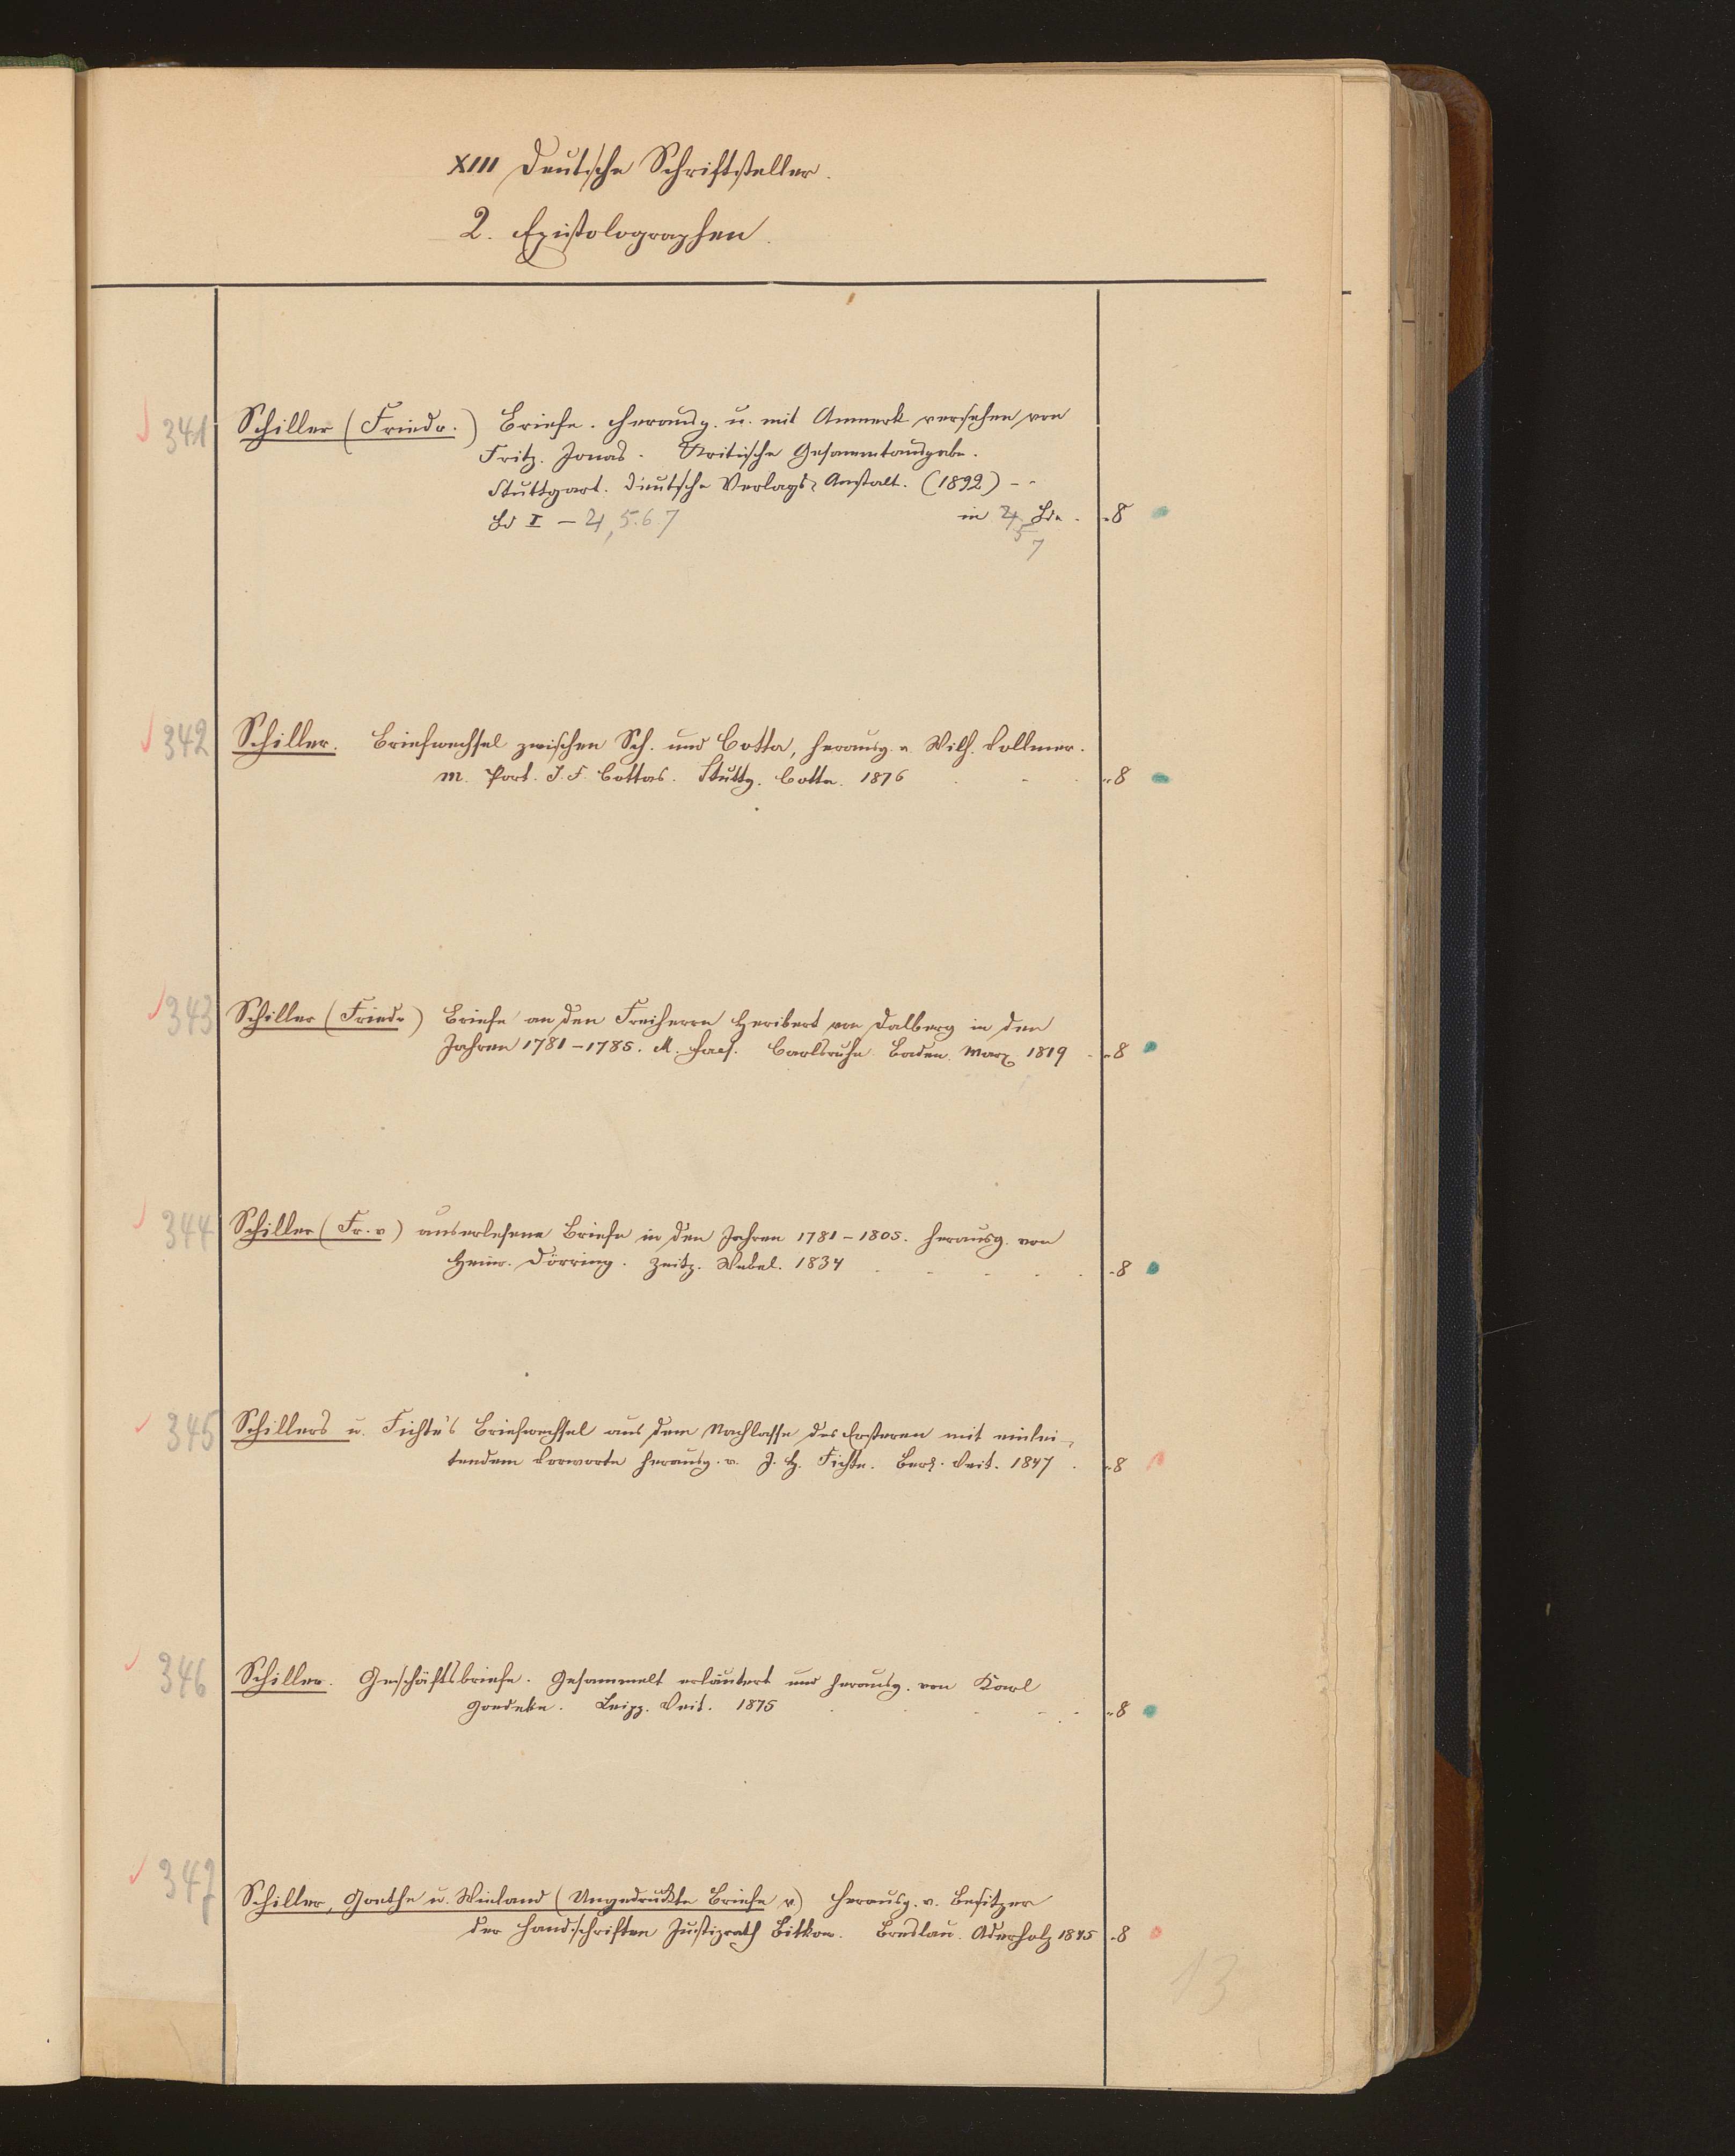 XIII Deutsche Schriftsteller.
2. Epistolographen.
341 Schiller (Friedr.) Briefe. Herausg. u. mit Anmerk. versehen von
Fritz. Jonas. Kritische Gesammtausgabe.
Stuttgart. Deutsche Verlags-Anstalt. (1892) - -
Bd I – 4, 5. 6. 7 in 4 Bdn. 8
5
7
342 Schiller. Briefwechsel zwischen Sch. und Cotta, herausg. v. Wilh. Vollmer.
M. Port. J. F. Cottas. Stuttg. Cotta. 1876 8
343 Schiller (Friedr) Briefe an den Freiherrn Heribert von Dalberg in den
Jahren 1781–1785. M. Facs. Carlsruhe Baden. Marx 1819 8
344 Schiller (Fr. v) auserlesene Briefe in den Jahren 1781–1805. herausg. von
Heinr. Dörring. Zeitz. Webel. 1834 8
345 Schillers u. Fichte's Briefwechsel aus dem Nachlasse des Ersteren mit einlei-
tendem Vorworte herausg. v. J. H. Fichte. Berl. Veit. 1847 8
346 Schiller. Geschäftsbriefe. Gesammelt erläutert und herausg. von Karl
Goedeke. Leipz. Veit. 1875 8
347 Schiller, Goethe u. Wieland (Ungedruckte Briefe v) herausg. v. Besitzer
der Handschriften Justizrath Bitkow. Breslau. Aderholz 1845 8
13